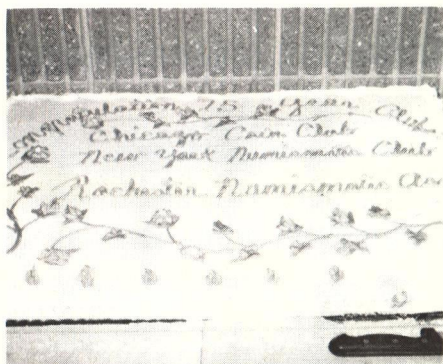 Congratulations 75 Year Clubs
Chicago Coin Club
New York Numismatic Club
Rochester Numismatic